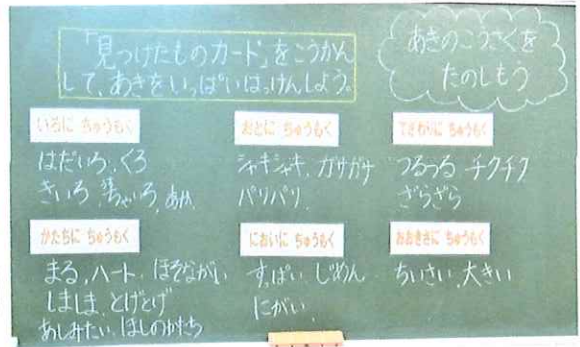 「見つけたものカード」をこうかん
して、あきをいっぱいはっけんしよう。
あきのこうさくを
たのしもう
いろに ちゅうもく
はだいろ、くろ
きいろ、茶いろ、あか
おとに ちゅうもく
シャキシャキ、ガサガサ
パリパリ、
てざわりに ちゅうもく
つるつる チクチク
ざらざら
かたちに ちゅうもく
まる、ハート、ほそながい
しましま、とげとげ
あしみたい、ほしのかたち
においに ちゅうもく
すっぱい、じめん
にがい、
おおきさに ちゅうもく
ちいさい、大きい